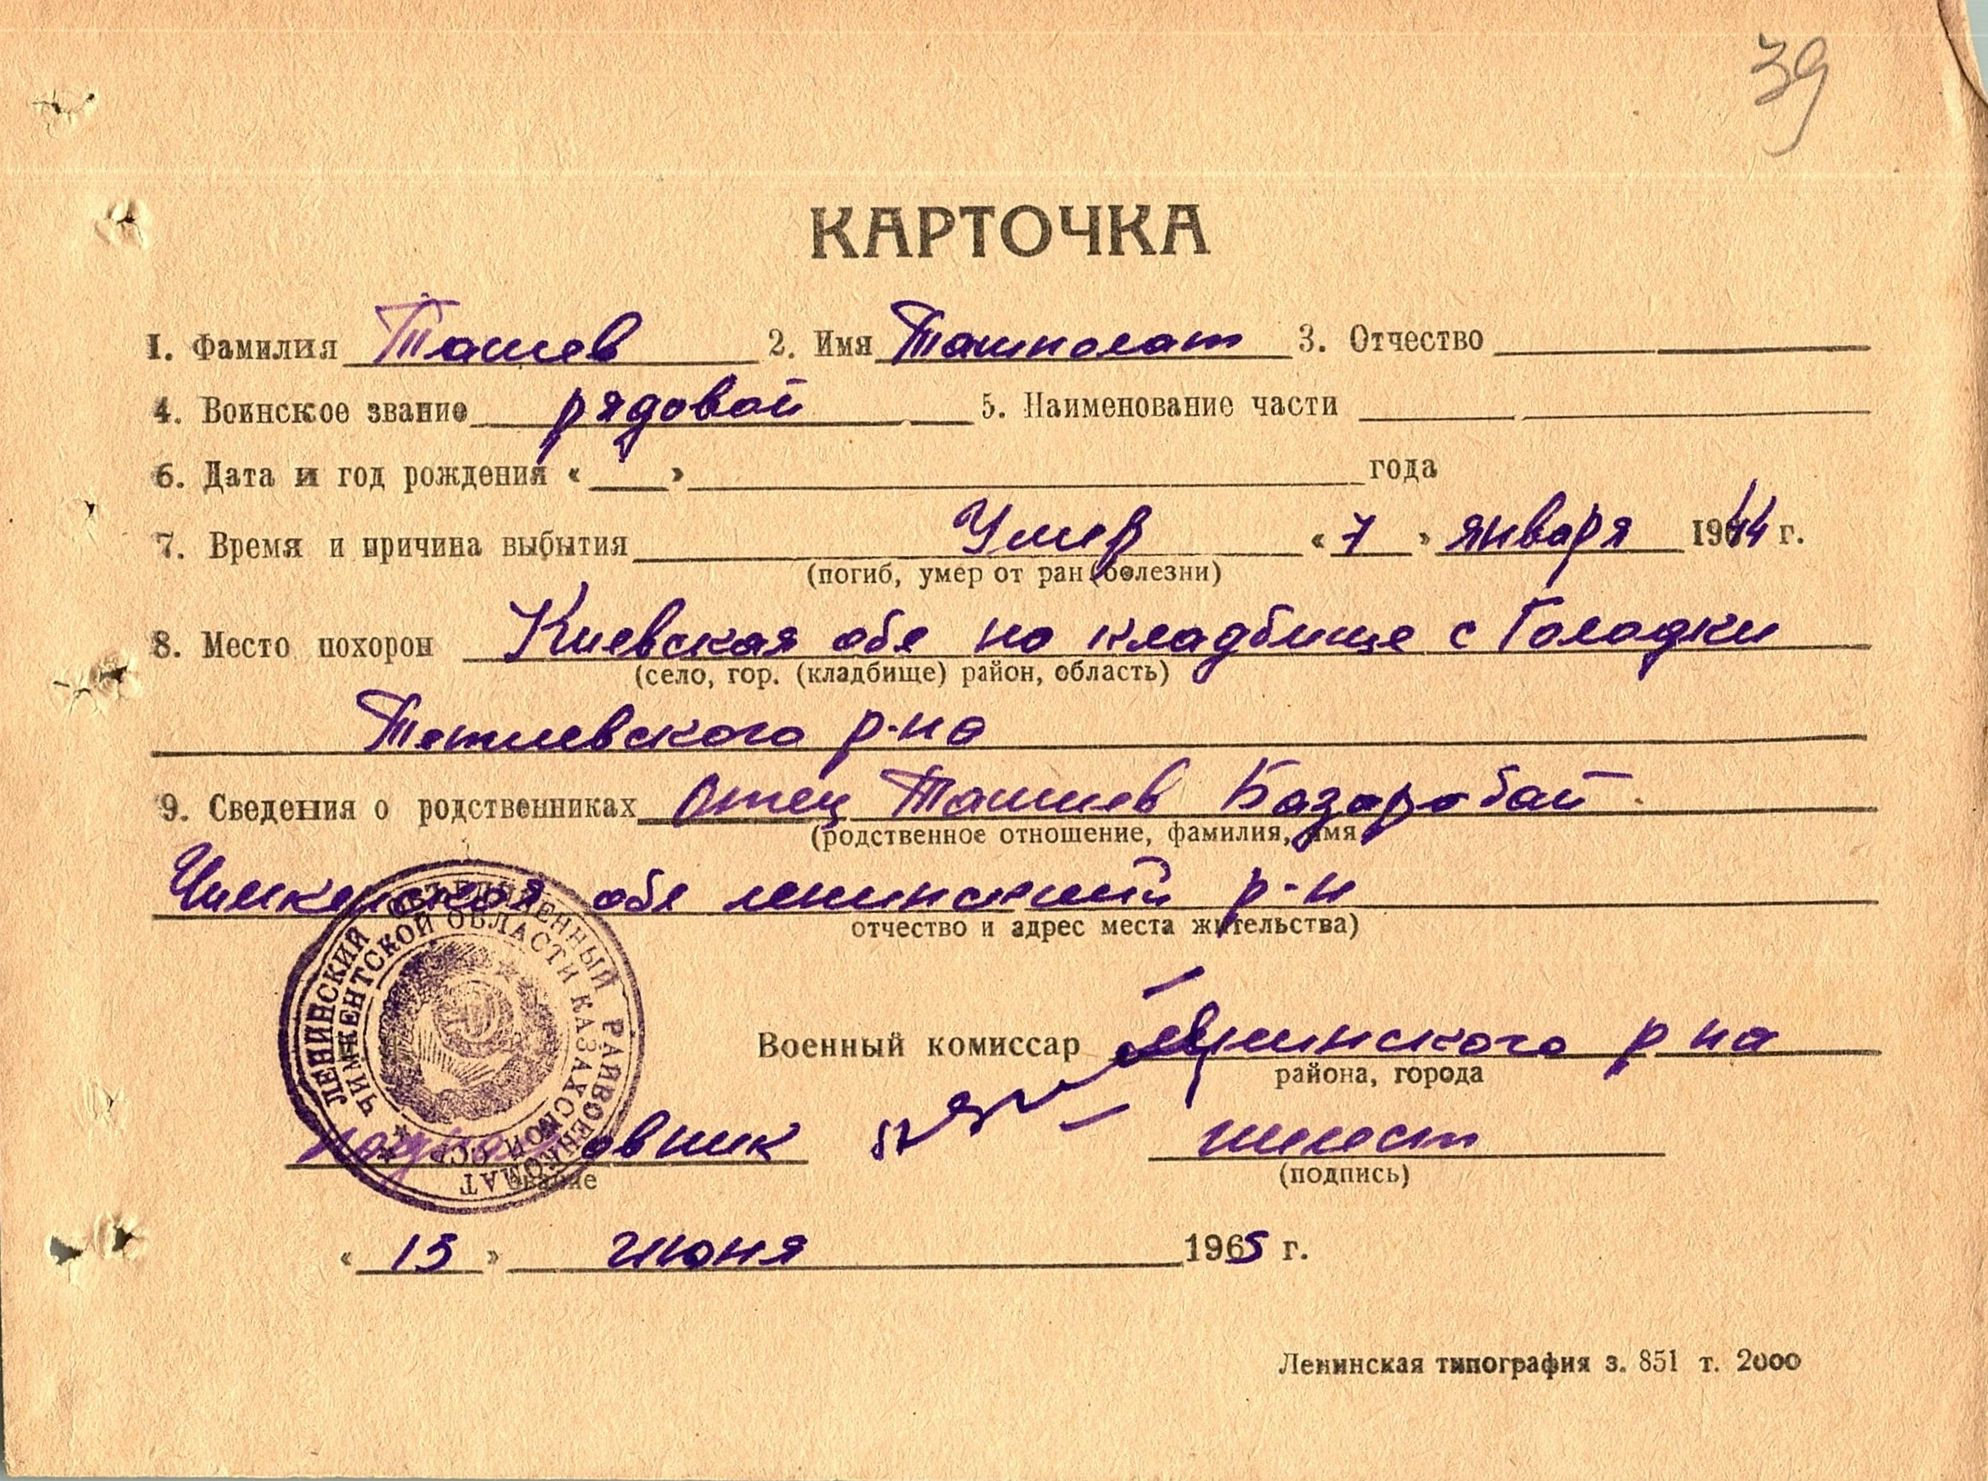 39
КАРТОЧКА
1. Фамилия Ташев 2. Имя Ташполат 3. Отчество
4. Воинское звание рядовой 5. Наименование части
6. Дата и год рождения « » года
7. Время и причина выбытия Умер « 7 » января 1944 г.
(погиб, умер от ран (болезни)
8. Место похорон Киевская обл на кладбище с Голодки
(село, гор. (кладбище) район, область)
Тетиевского р-на
9. Сведения о родственниках Отец Ташев Базарбай
(родственное отношение, фамилия, имя
Чимкенская обл ленинский р-н
отчество и адрес места жительства)
ЛЕНИНСКИЙ ОБЪЕДИНЕННЫЙ РАЙВОЕНКОМАТ
ЧИМКЕНТСКОЙ ОБЛАСТИ КАЗАХСКОЙ ССР
Военный комиссар Ленинского р на
района, города
подполковник шелест
звание (подпись)
« 15 » июня 1965 г.
Ленинская типография з. 851 т. 2000